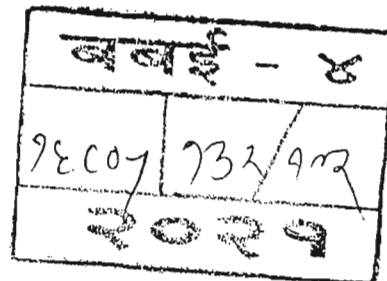 बबई - ४
१६८०५ १३२/१७२
२०२१